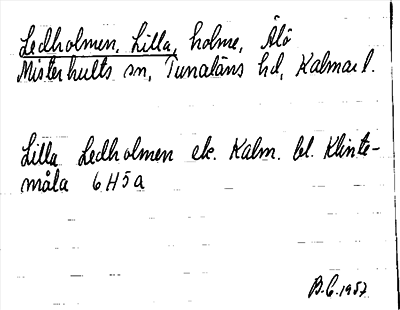 Ledholmen, Lilla, holme, Älö
Misterhults sn, Tunaläns hd, Kalmar l.
Lilla Ledholmen ek. Kalm. bl. Klinte-
måla 6H5a
B.C. 1957